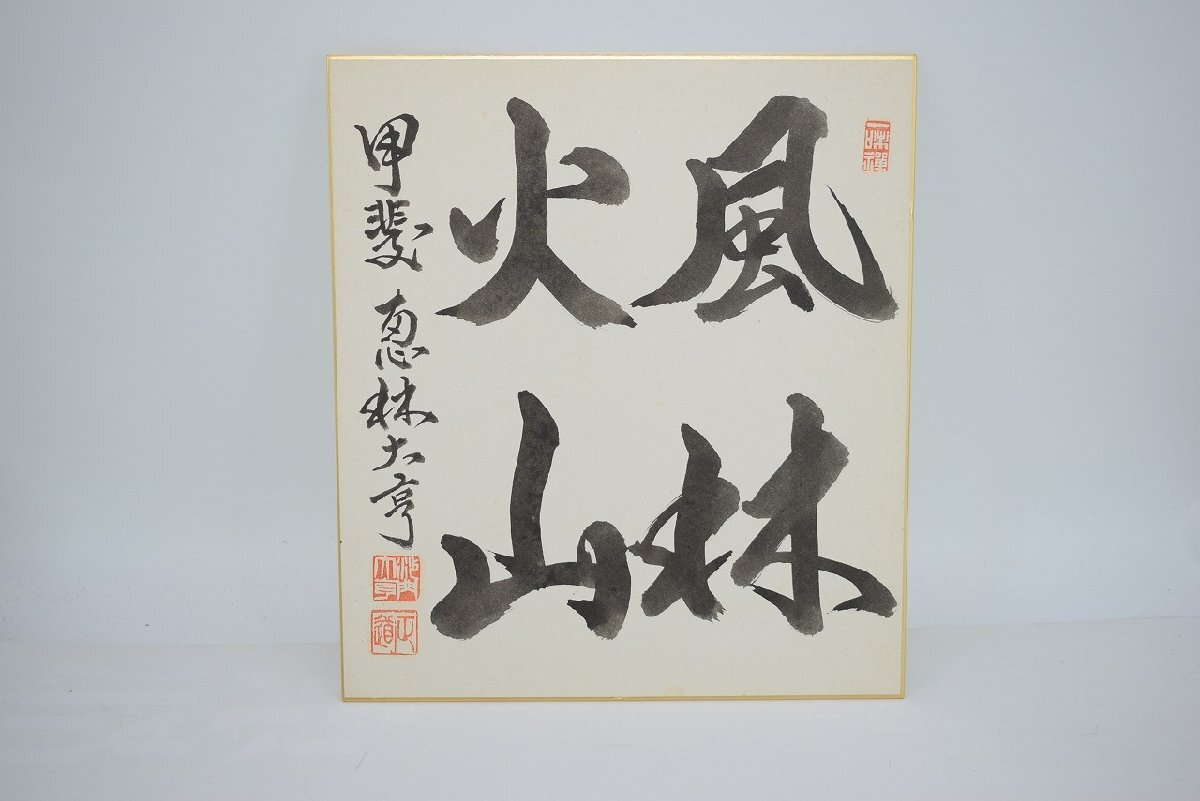 風林
火山
甲斐 恵林大亨